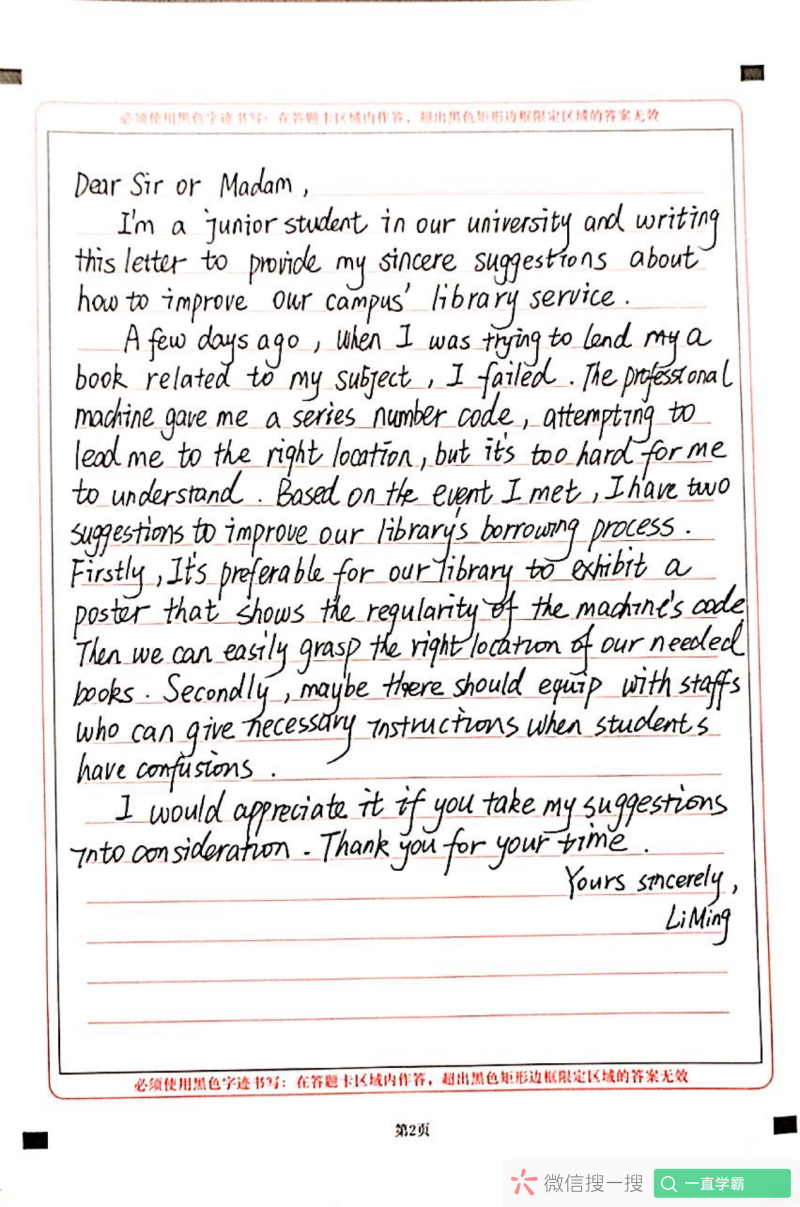 必须使用黑色字迹书写：在答题卡区域内作答，超出黑色矩形边框限定区域的答案无效
Dear Sir or Madam,
I'm a junior student in our university and writing
this letter to provide my sincere suggestions about
how to improve our campus' library service.
A few days ago, when I was trying to lend my a
book related to my subject, I failed. The professional
machine gave me a series number code, attempting to
lead me to the right location, but it's too hard for me
to understand. Based on the event I met, I have two
suggestions to improve our library's borrowing process.
Firstly, It's preferable for our library to exhibit a
poster that shows the regularity of the machine's code.
Then we can easily grasp the right location of our needed
books. Secondly, maybe there should equip with staffs
who can give necessary instructions when students
have confusions.
I would appreciate it if you take my suggestions
into consideration. Thank you for your time.
Yours sincerely,
Li Ming
必须使用黑色字迹书写：在答题卡区域内作答，超出黑色矩形边框限定区域的答案无效
第2页
微信搜一搜 一直学霸